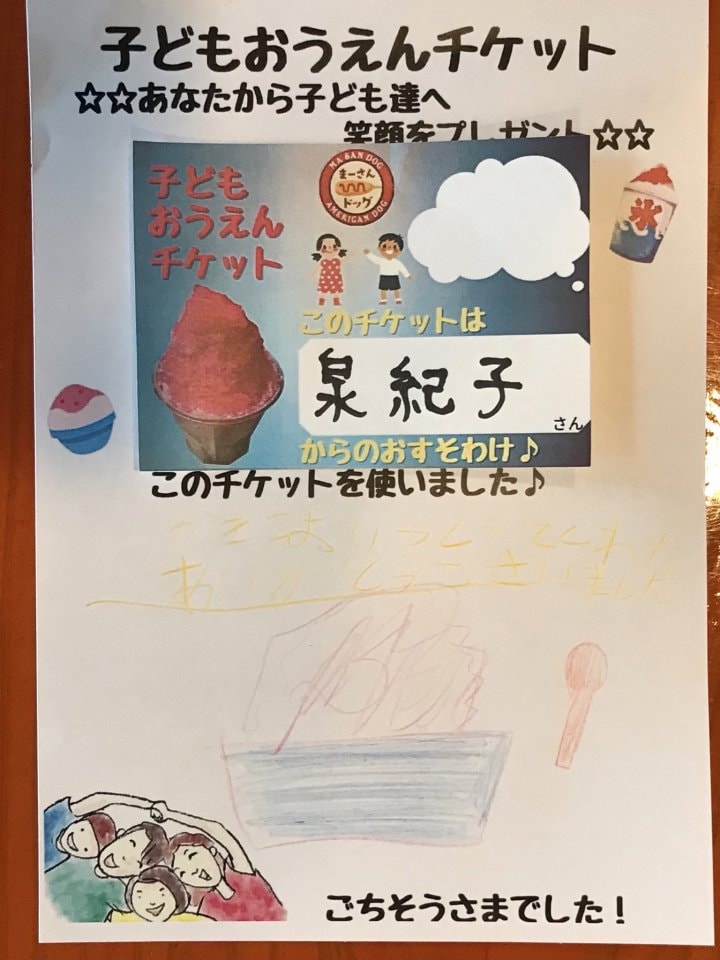 子どもおうえんチケット
☆☆あなたから子ども達へ
笑顔をプレゼント☆☆
子ども
おうえん
チケット
MA SAN DOG
まーさん
ドッグ
AMERICAN DOG
氷
このチケットは
泉紀子
さん
からのおすそわけ♪
このチケットを使いました♪
ありがとうございました
ごちそうさまでした！